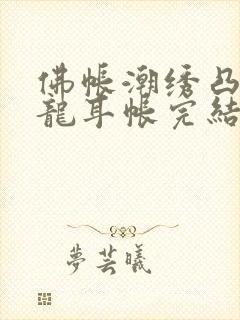 佛帐潮绣凸
龍耳帐完結
夢芸曦